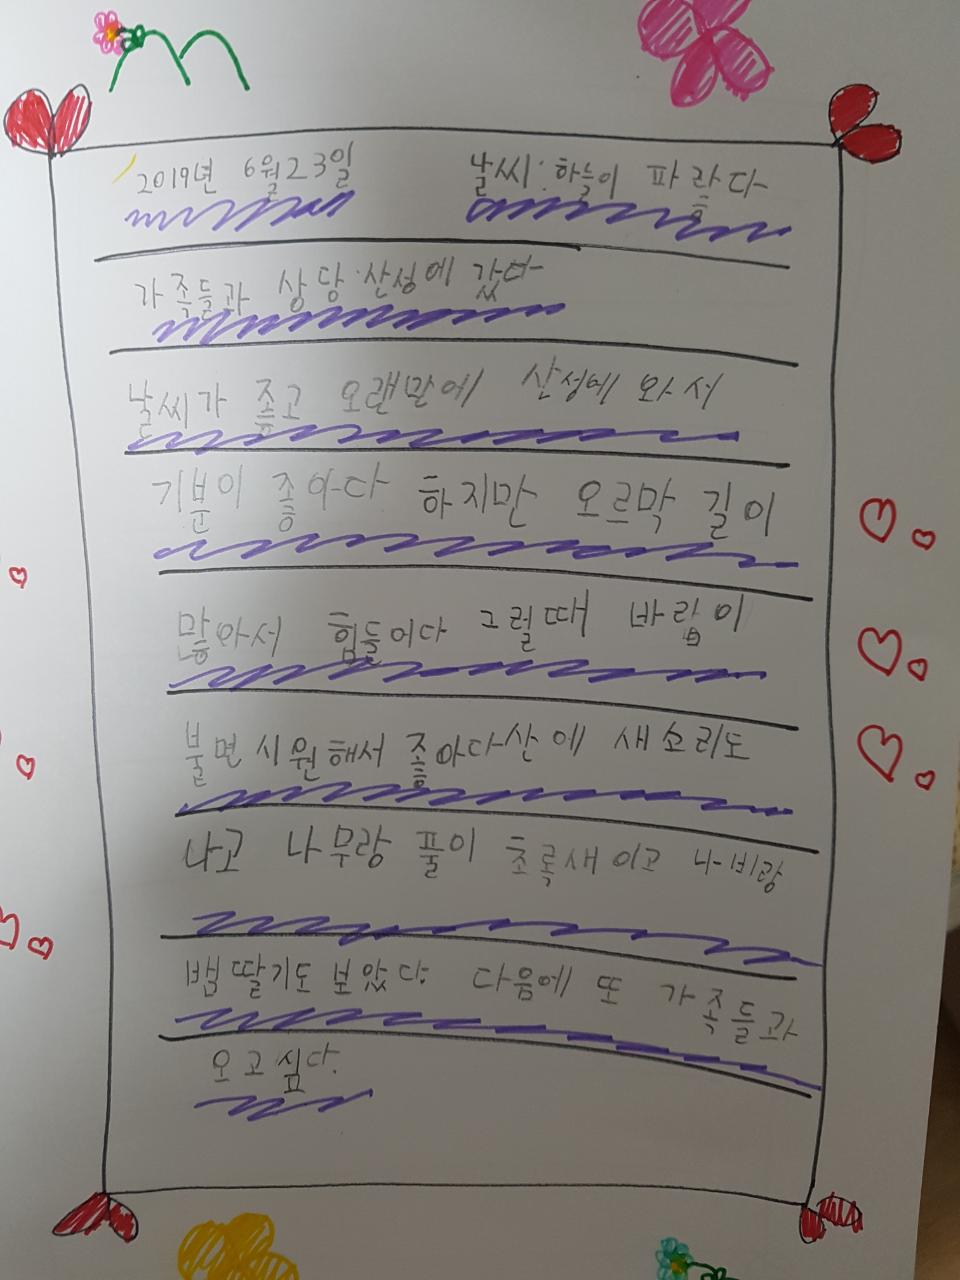 2019년 6월23일 날씨:하늘이 파랗다
가족들과 상당산성에 갔다
날씨가 좋고 오랜만에 산성에 와서
기분이 좋아다 하지만 오르막 길이
많아서 힘들어다 그럴때 바람이
불면 시원해서 좋아다 산에 새소리도
나고 나무랑 풀이 초록새이고 나비랑
뱀딸기도 보았다. 다음에 또 가족들과
오고싶다.